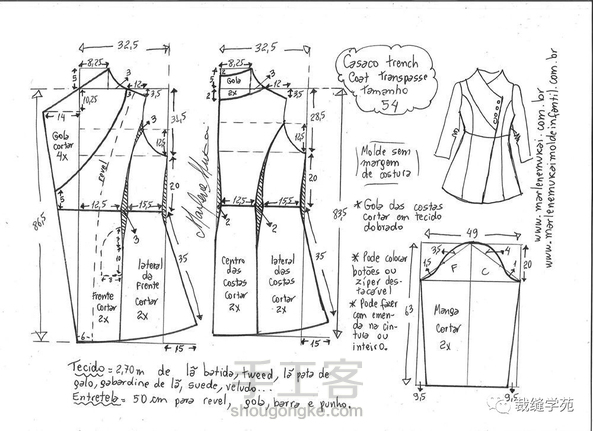 32,5
8,25
3
12
3,5
5
10,25
14
Gola
cortar
4x
31,5
12,5
revel
20
86,5
12,5
15,5
3
35
Frente
cortar
2x
lateral
da
Frente
cortar
2x
6
15
Marlene Mukai
32,5
8,25
5
Gola
2x
2
2
3
12
28,5
3,5
12,5
20
83,5
15,5
12,5
2
2
35
Centro
das
Costas
Cortar
2x
lateral
das
Costas
Cortar
2x
15
Casaco trench
Coat transpasse
Tamanho
54
Molde sem
margem
de costura
* Gola das costas
cortar em tecido
dobrado
* Pode colocar
botões ou
ziper des-
tacável
* Pode fazer
com emenda
na cin-
tura ou
inteiro.
www.marlenemukai.com.br
www.marlenemukaimoldeinfantil.com.br
49
3,5
4
1,5
F
C
1
20
63
Manga
Cortar
2x
9,5
9,5
Tecido = 2,70 m de lã batida, tweed, lã pata de
galo, gabardine de lã, suede, veludo...
Entretela = 50 cm para revel, gola, barra e punho.
手工客
shougongke.com
裁缝学苑